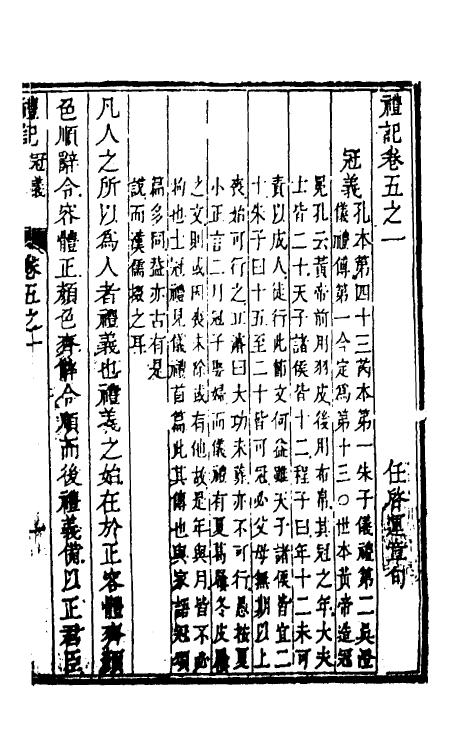 禮記卷五之一
任啓運章句
冠義孔本第四十三芮本第一朱子儀禮第二吳澄
儀禮傳第一今定爲第十三○世本黃帝造冠
冕孔云黃帝前用羽皮後用布帛其冠之年大夫
士皆二十天子諸侯皆十二程子曰年十二未可
責以成人徒行此節文何益雖天子諸侯皆宜二
十朱子曰十五至二十皆可冠必父母無期以上
喪始可行之又溥曰大功未葬亦不可行愚按夏
小正言二月冠子娶婦而儀禮有夏葛屨冬皮屨
之文則或因喪未除或有他故是年與月皆不必
拘也士冠禮見儀禮首篇此其傳也與家語冠頌
篇多同益亦古有是
說而漢儒掇之耳
凡人之所以爲人者禮義也禮義之始在於正容體齊顏
色順辭令容體正顏色齊辭令順而後禮義備以正君臣
禮記 冠義 卷五之一 一